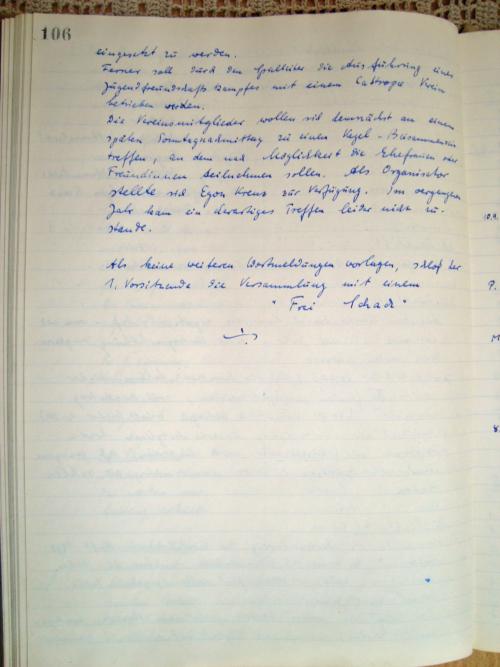 106
eingesetzt zu werden.
Ferner soll durch den Spielleiter die Ausführung eines
Jugendfreundschaftskampfes mit einem Castroper Verein
betrieben werden.
Die Vereinsmitglieder wollen sich demnächst an einem
späten Sonntagnachmittag zu einem Kegel-Beisammensein
treffen, an dem nach Möglichkeit die Ehefrauen oder
Freundinnen teilnehmen sollen. Als Organisator
stellte sich Egon Krenz zur Verfügung. Im vergangenen
Jahr kam ein derartiges Treffen leider nicht zu-
stande.
Als keine weiteren Wortmeldungen vorlagen, schloß der
1. Vorsitzende die Versammlung mit einem
" Frei Schach "